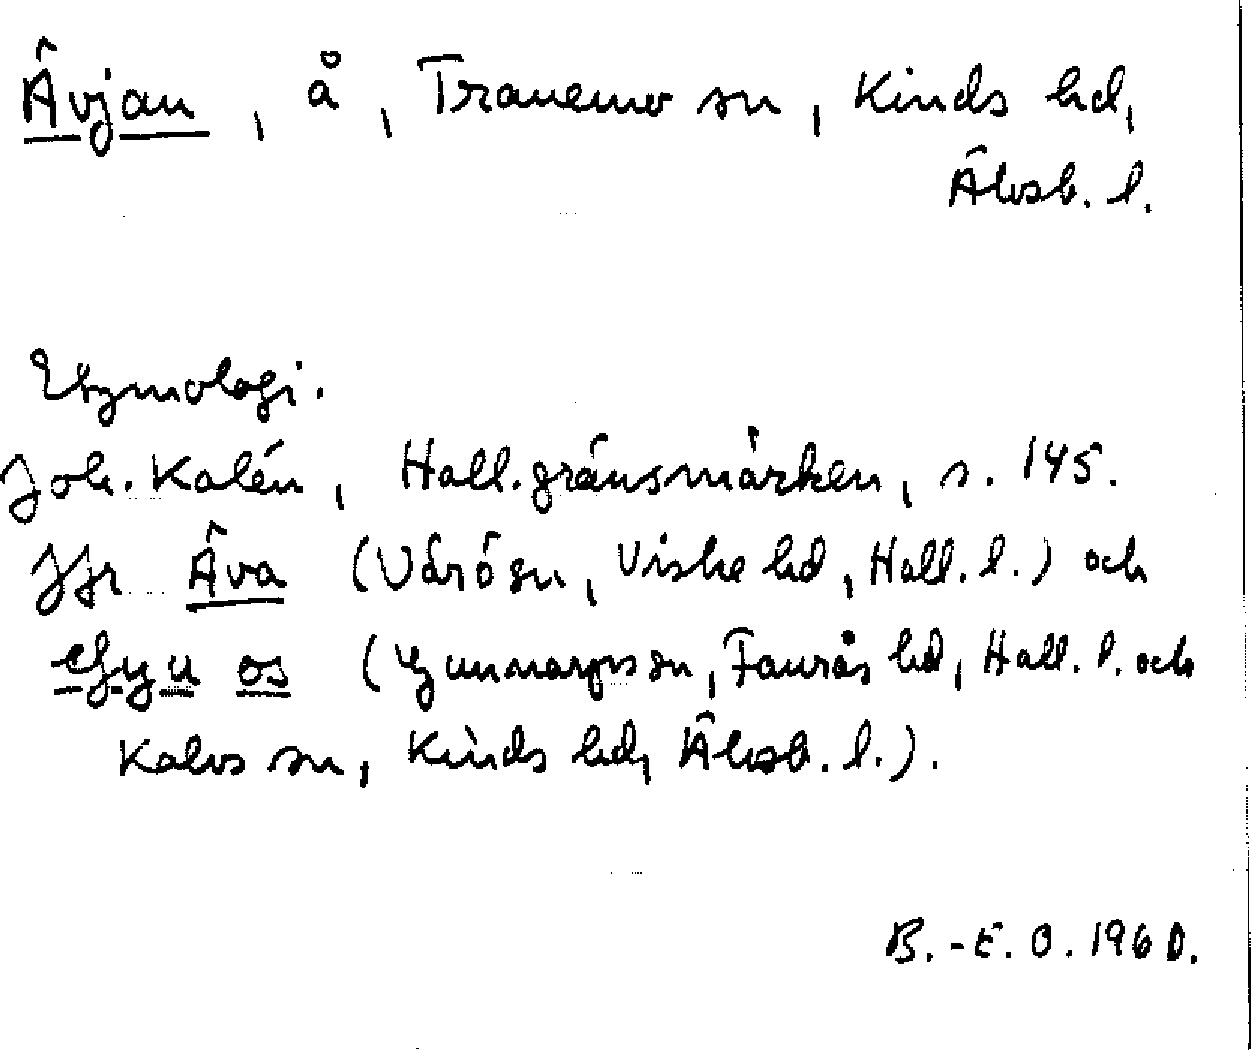 Ävjan, å, Tranemo sn, Kinds hd,
Älvsb. l.
Etymologi.
Joh. Kalén, Hall. gränsmärken, s. 145.
Jfr Äva (Värö sn, Viske hd, Hall. l.) och
os (Gunnarps sn, Faurås hd, Hall. l. och
Kalvs sn, Kinds hd, Älvsb. l.).
B.-E. O. 1960.